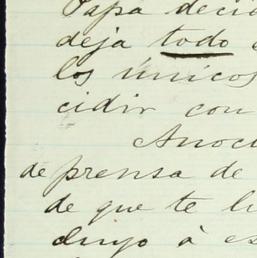 Papá deci
deja todo
los únicos
cidir con
Anoc
de prensa de
de que te
dujo á es